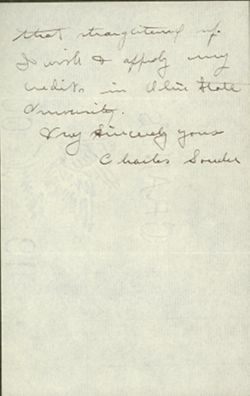 that straightened up.
I wish to apply my
credits in Ohio State
University.
Very Sincerely yours
Charles Souder